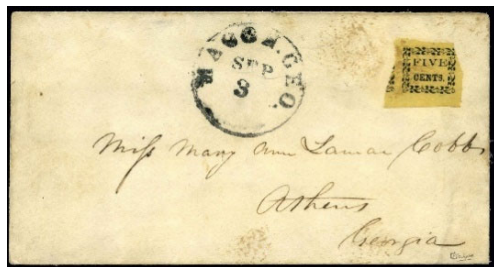 MACON. GEO.
SEP
3
FIVE
CENTS.
Miss Mary Ann Lamar Cobb
Athens
Georgia